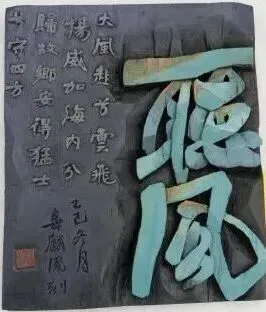 聽風
大風起兮雲飛
揚威加海內兮
歸故鄉安得猛士
兮守四方
乙巳冬月